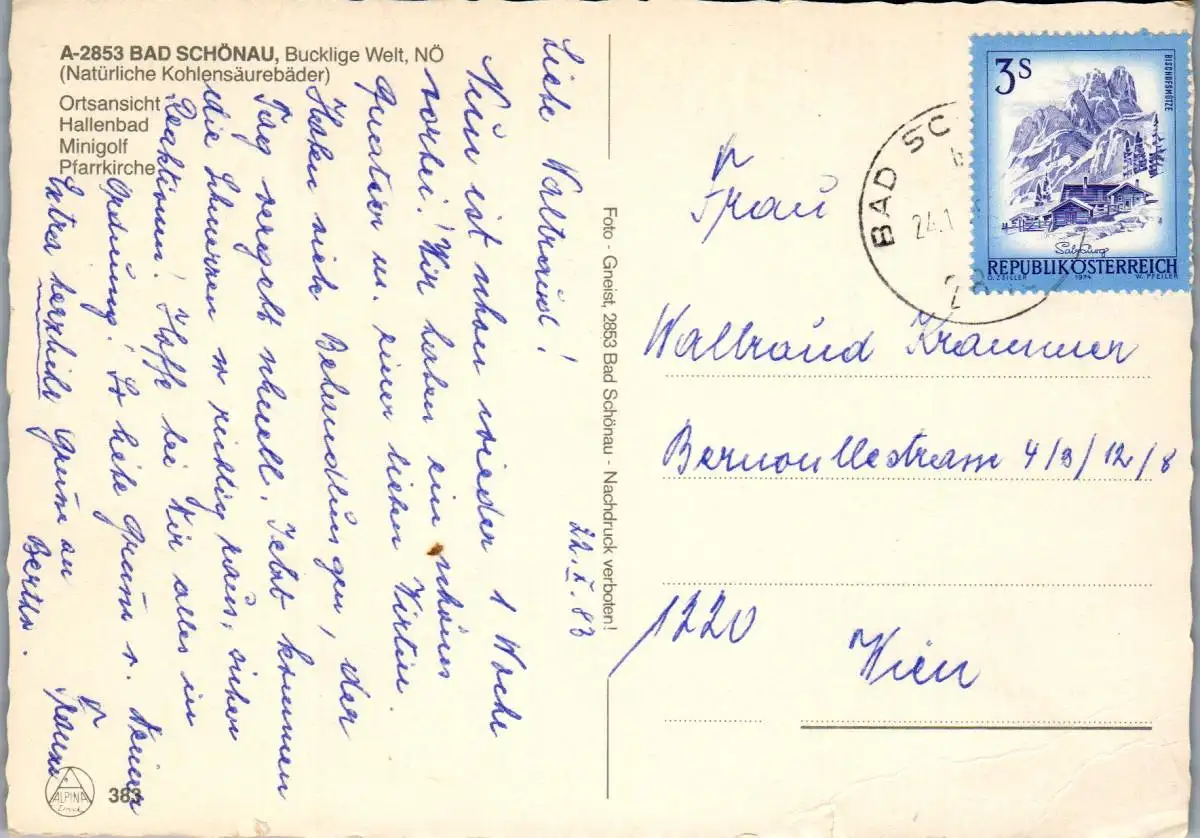 A-2853 BAD SCHÖNAU, Bucklige Welt, NÖ
(Natürliche Kohlensäurebäder)
Ortsansicht
Hallenbad
Minigolf
Pfarrkirche
22. X. 83
Liebe Waltraud!
Nun ist schon wieder 1 Woche
vorbei! Wir haben ein schönes
Quartier u. eine liebe Wirtin.
Haben viele Behandlungen, der
Tag vergeht schnell. Jetzt kommen
die Schmerzen so richtig raus,
Reaktionen! Hoffe bei Dir alles in
Ordnung! So liebe Grüsse v. Deiner
Franzi
Extra herzliche Grüsse an
Bertha.
ALPINA
Druck
383
Foto - Gneist, 2853 Bad Schönau - Nachdruck verboten!
3S
BISCHOFSMÜTZE
Salzburg
REPUBLIK ÖSTERREICH
O. ZEILLER 1974 W. PFEILER
BAD SC
24.1
Frau
Waltraud Krammer
Bernoullestrasse 4/3/12/8
1220
Wien